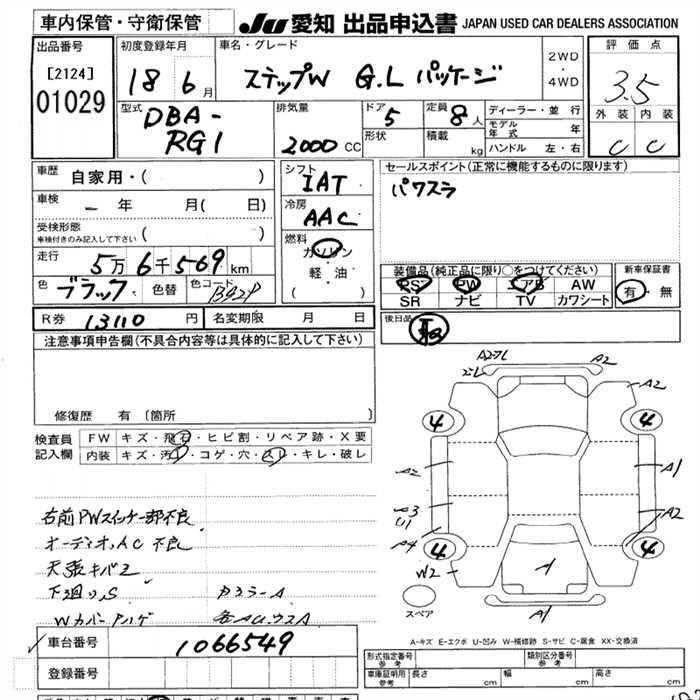 車内保管・守衛保管
JU 愛知 出品申込書 JAPAN USED CAR DEALERS ASSOCIATION
出品番号
[2124]
01029
初度登録年月
18 6月
車名・グレード
ステップW G.L パッケージ
2WD
・
4WD
評価点
3.5
外装 内装
C C
型式
DBA-
RG1
排気量
2000 CC
ドア 5
形状
定員 8人
積載 kg
ディーラー・並行
モデル年式 年
ハンドル 左・右
車歴
自家用・( )
車検
ー 年 月( 日)
受検形態
車検付きのみ記入して下さい ( )
走行
5万6千569km
色 ブラック 色替 色コード B92P
シフト
IAT
冷房
AAC
燃料
ガソリン
・
軽・油
( )
セールスポイント(正常に機能するものに限ります)
パワスラ
装備品(純正品に限り○をつけてください)
PS PW エアB AW
SR ナビ TV カワシート
新車保証書
有・無
後日品
R券 13110 円 名変期限 月 日
注意事項申告欄(不具合内容等は具体的に記入して下さい)
修復歴 有 〔箇所 〕
検査員
記入欄
FW キズ・飛石・ヒビ割・リペア跡・X要
内装 キズ・汚レ・コゲ・穴・スレ・キレ・破レ
右前PWスイッチ一部不良
オーディオ,AC 不良
天張キバミ
下廻りS
Wカバーハゲ
車台番号 1066549
登録番号
A2
A2
4
4
A2
A1
A3
U1
A2
A4
4
4
W2
A
A1
スペア
A-キズ E-エクボ U-凹み W-補修跡 S-サビ C-腐食 XX-交換済
形式指定番号
参考
類別区分番号
参考
車庫証明用
参考
長さ cm 幅 cm 高さ cm